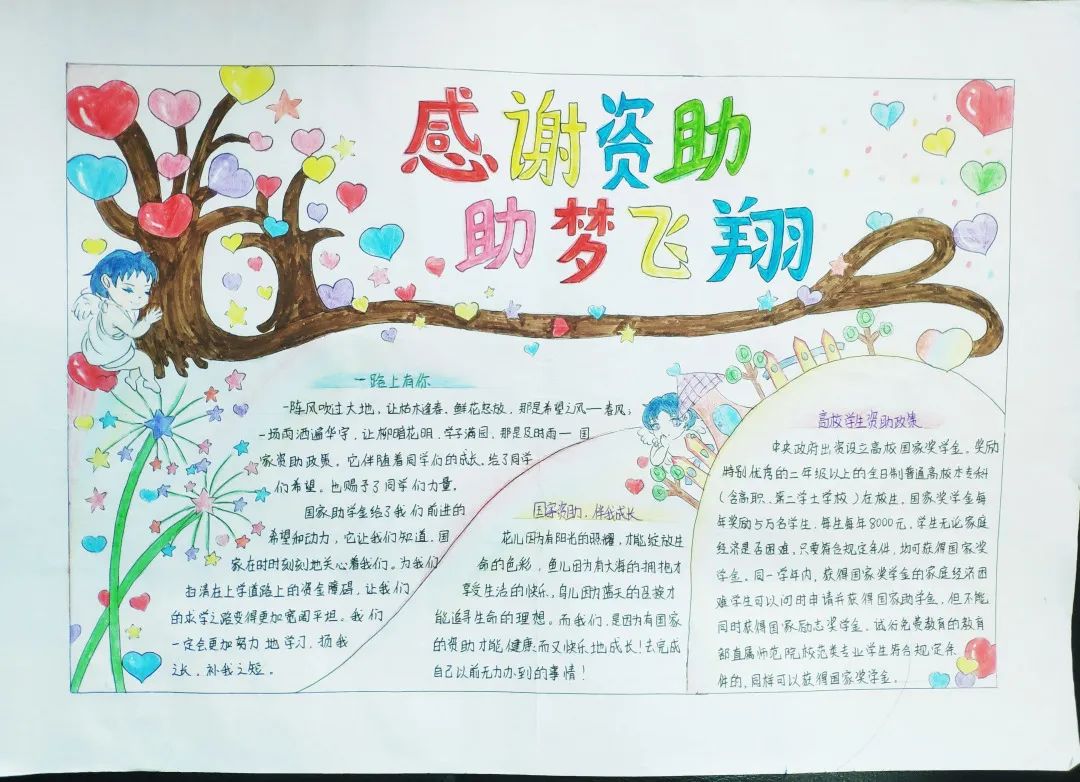 感谢资助
助梦飞翔
一路上有你
一阵风吹过大地，让枯木逢春、鲜花怒放，那是希望之风——春风；
一场雨洒遍华宇，让柳暗花明、学子满园，那是及时雨——国
家资助政策。它伴随着同学们的成长，给了同学
们希望。也赐予了同学们力量。
国家助学金给了我们前进的
希望和动力，它让我们知道，国
家在时时刻刻地关心着我们。为我们
扫清在上学道路上的资金障碍，让我们
的求学之路变得更加宽阔平坦。我们
一定会更加努力地学习，扬我
之长，补我之短。
国家资助、伴我成长
花儿因为有阳光的照耀，才能绽放生
命的色彩，鱼儿因为有大海的拥抱才
享受生活的快乐，鸟儿因为蓝天的
能追寻生命的理想。而我们，是因为有国家
的资助才能健康而又快乐地成长！去完成
自己以前无力办到的事情！
高校学生资助政策
中央政府出资设立高校国家奖学金，奖励
特别优秀的二年级以上的全日制普通高校本专科
（含高职、第二学士学校）在校生，国家奖学金每
年奖励5万名学生，每生每年8000元，学生无论家庭
经济是否困难，只要符合规定条件，均可获得国家奖
学金。同一学年内，获得国家奖学金的家庭经济困
难学生可以同时申请并获得国家助学金，但不能
同时获得国家励志奖学金。试行免费教育的教育
部直属师范院校范类专业学生符合规定条
件的，同样可以获得国家奖学金。